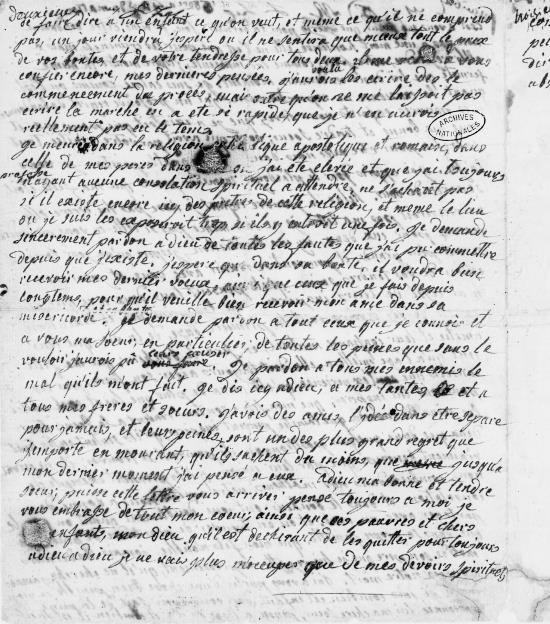 de faire dire a un enfant ce qu'on veut, et même ce qu'il ne comprend
pas, un jour viendra j'espere ou il ne sentira que mieux tout le prix
de vos bontés et de votre tendresse pour tous deux il me reste a vous
confier encore, mes dernieres pensées, j'aurois voulu les ecrire dès le
commencement du procès, mais outre qu'on ne me laissoit pas
ecrire la marche en a ete si rapide, que je n'en aurois
reellement pas eu le tems.
je meurs dans la religion catholique apostolique et romaine, dans
celle de mes peres, dans celle ou j'ai ete elevée et que j'ai toujours
professée
n'ayant aucune consolation spirituel a attendre, ne sachant pas
si il existe encore ici des pretres de cette religion, et même le lieu
ou je suis les exposeroit trop si ils y entroit une fois, je demande
sincerement pardon a dieu de toutes les fautes que j'ai pu commettre
depuis que j'existe, j'espere que dans sa bonté, il voudra bien
recevoir mes dernier voeux, ainsi que ceux que je fais depuis
longtems, pour qu'il veuille bien recevoir mon ame dans sa
misericorde
je demande pardon a tout ceux que je connois et
a vous ma soeur en particulier, de toutes les peines que sans le
vouloir j'aurois pu leurs causer je pardonne a tous mes ennemis le
mal qu'ils mont fait, je dis ici adieu, a mes tantes et a
tous mes freres et soeurs, j'avois des amis, l'idée dans etre separé
pour jamais, et leurs peines, sont un des plus grand regret que
j'emporte en mourant, qu'ils sachent du moins, que jusqu'a
mon dernier moment j'ai pensé a eux. adieu ma bonne et tendre
soeur, puisse cette lettre vous arriver, pensé toujours a moi je
vous embrasse de tout mon coeur, ainsi que ces pauvres et chers
enfants, mon dieu qu'il est dechirant de les quitter pour toujours
adieu adieu, je ne vais plus m'occuper que de mes devoirs spirituels
ARCHIVES
NATIONALES